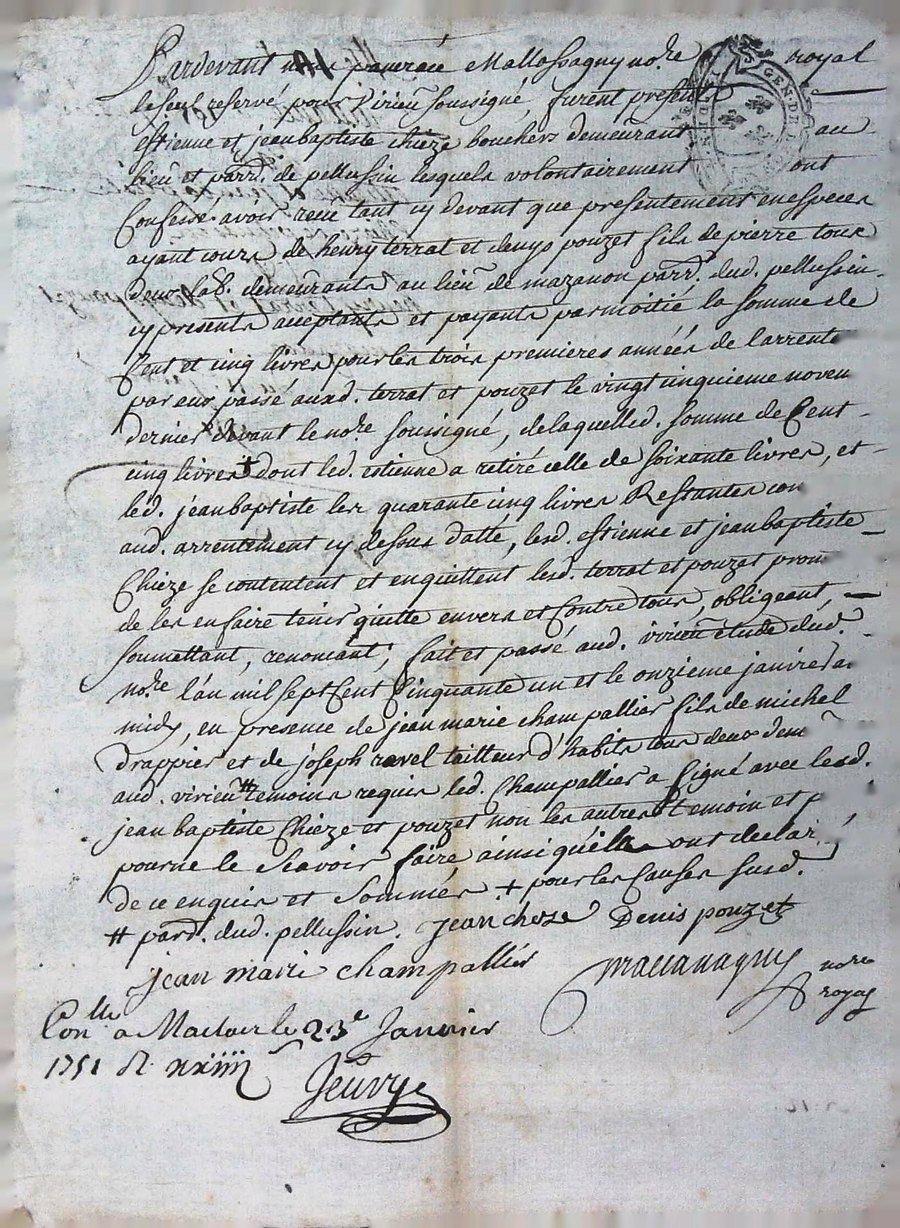 Pardevant Mallassagny no.re royal
le seul reservé pour Virieu soussigné furent present
estienne et jean baptiste chieze bouchers demeurant au
lieu et parr. de pellussin lesquels volontairement ont
Confessé avoir receu tant cy devant que presentement en especes
ayant cours de henry terrat et denys pouzet fils de pierre tous
deux lab. demeurants au lieu de mazanon parr. dud. pellussin
cy presents acceptants et payants par moitié la somme de
Cent et cinq livres pour les trois premieres années de larrente
par eux passé auxd. terrat et pouzet le vingt cinquieme novem
dernier devant le no.re soussigné, de laquelle d. somme de Cent
cinq livres + dont led. estienne a retiré celle de soixante livres, et
led. jean baptiste les quarante cinq livres Restantes con
aud. arrentement cy dessus datté, lesd. estienne et jean baptiste
Chieze se contentent et en quittent lesd. terrat et pouzet prom
de les en faire tenir quitte envers et Contre tous, obligeant,
soumettant, renoncant, fait et passé aud. virieu étude dud.
no.re l'an mil sept Cent Cinquante un et le onzieme janvier a.
midy, en presence de jean marie champallier fils de michel
drappier et de joseph ravel tailleur d'habits tous deux dem
aud. virieu # temoins requis led. Champallier a signé avec lesd.
jean baptiste Chieze et pouzet non les autres temoin et p
pour ne le Scavoir faire ainsi qu'ils ont declaré
de ce enquis et Sommés + pour les Causes susd.
# parr. dud. pellussin. jean chieze Denis pouzet
jean marie champallier
no.re
royal
Con.lle a Maclas le 23e Janvier
1751 R. xxiiii
Jeury
GEN. DE L